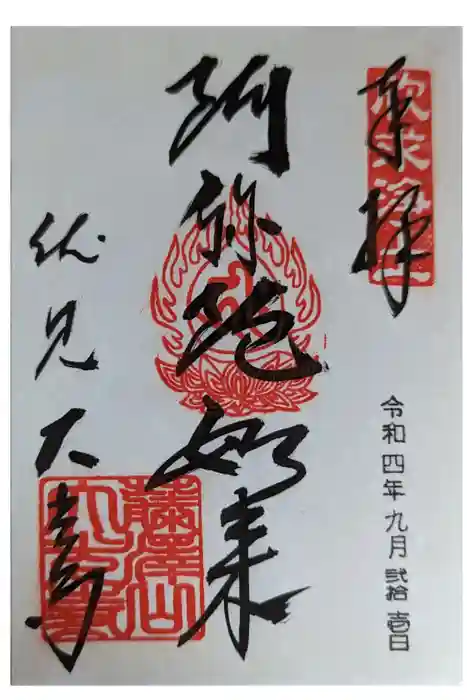 奉拝
欣求浄土
令和四年九月弐拾壱日
阿弥陀如来
伏見大寺